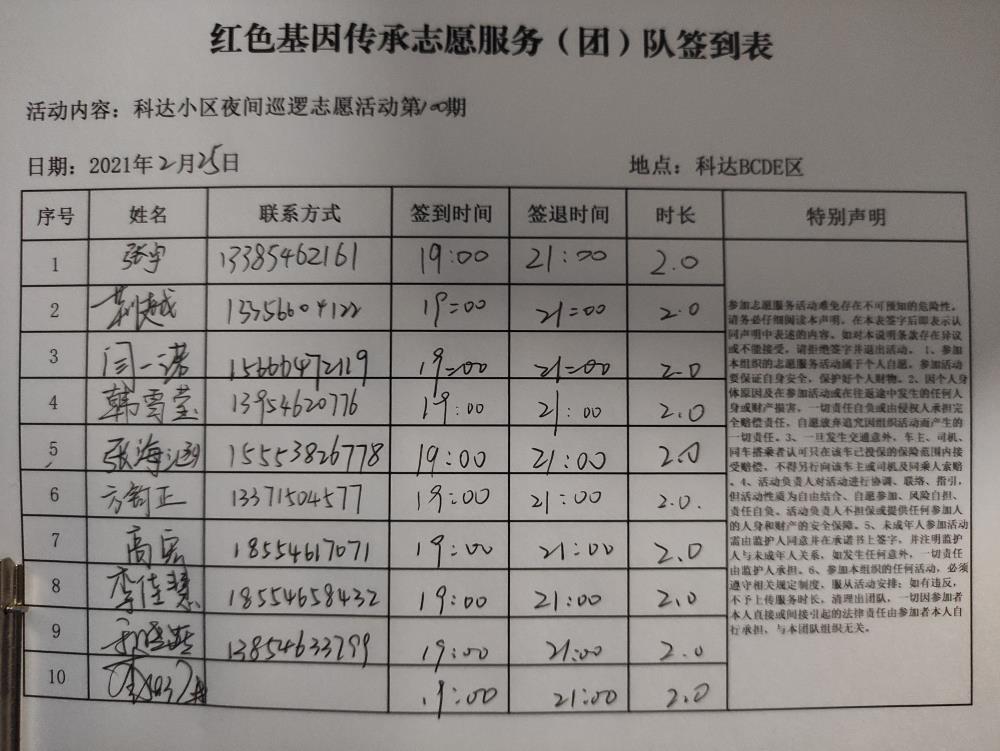 红色基因传承志愿服务（团）队签到表
活动内容：科达小区夜间巡逻志愿活动第100期
日期：2021年2月25日 地点：科达BCDE区
序号 姓名 联系方式 签到时间 签退时间 时长 特别声明
1 张宇 13385462161 19:00 21:00 2.0
2 荆越 13356604122 19:00 21:00 2.0
3 闫一诺 15666472119 19:00 21:00 2.0
4 韩雪莹 13954620776 19:00 21:00 2.0
5 张海 15553826778 19:00 21:00 2.0
6 方舒正 13371504577 19:00 21:00 2.0.
7 高宏 18554617071 19:00 21:00 2.0
8 李佳慧 18554658432 19:00 21:00 2.0
9 13854633799 19:00 21:00 2.0
10 19:00 21:00 2.0
参加志愿服务活动难免存在不可预知的危险性，
请务必仔细阅读本声明。在本表签字后即表示认
同声明中表述的内容。如对本说明条款存在异议
或不能接受，请拒绝签字并退出活动。1、参加
本组织的志愿服务活动属于个人自愿。参加活动
要保证自身安全，保护好个人财物。2、因个人身
体原因及在参加活动或在往返途中发生的任何人
身或财产损害，一切责任自负或由侵权人承担完
全赔偿责任，自愿放弃追究因组织活动而产生的
一切责任。3、一旦发生交通意外，车主、司机、
同车搭乘者认可只在该车已投保的保险范围内接
受赔偿，不得另行向该车主或司机及同乘人索赔
。4、活动负责人对活动进行协调、联络、指引，
但活动性质为自由结合、自愿参加、风险自担、
责任自负。活动负责人不担保或提供任何参加人
的人身和财产的安全保障。5、未成年人参加活动
需由监护人同意并在承诺书上签字，并注明监护
人与未成年人关系，如发生任何意外，一切责任
由监护人承担。6、参加本组织的任何活动，必须
遵守相关规定制度，服从活动安排；如有违反，
不予上传服务时长，清理出团队，一切因参加者
本人直接或间接引起的法律责任由参加者本人自
行承担，与本团队组织无关。